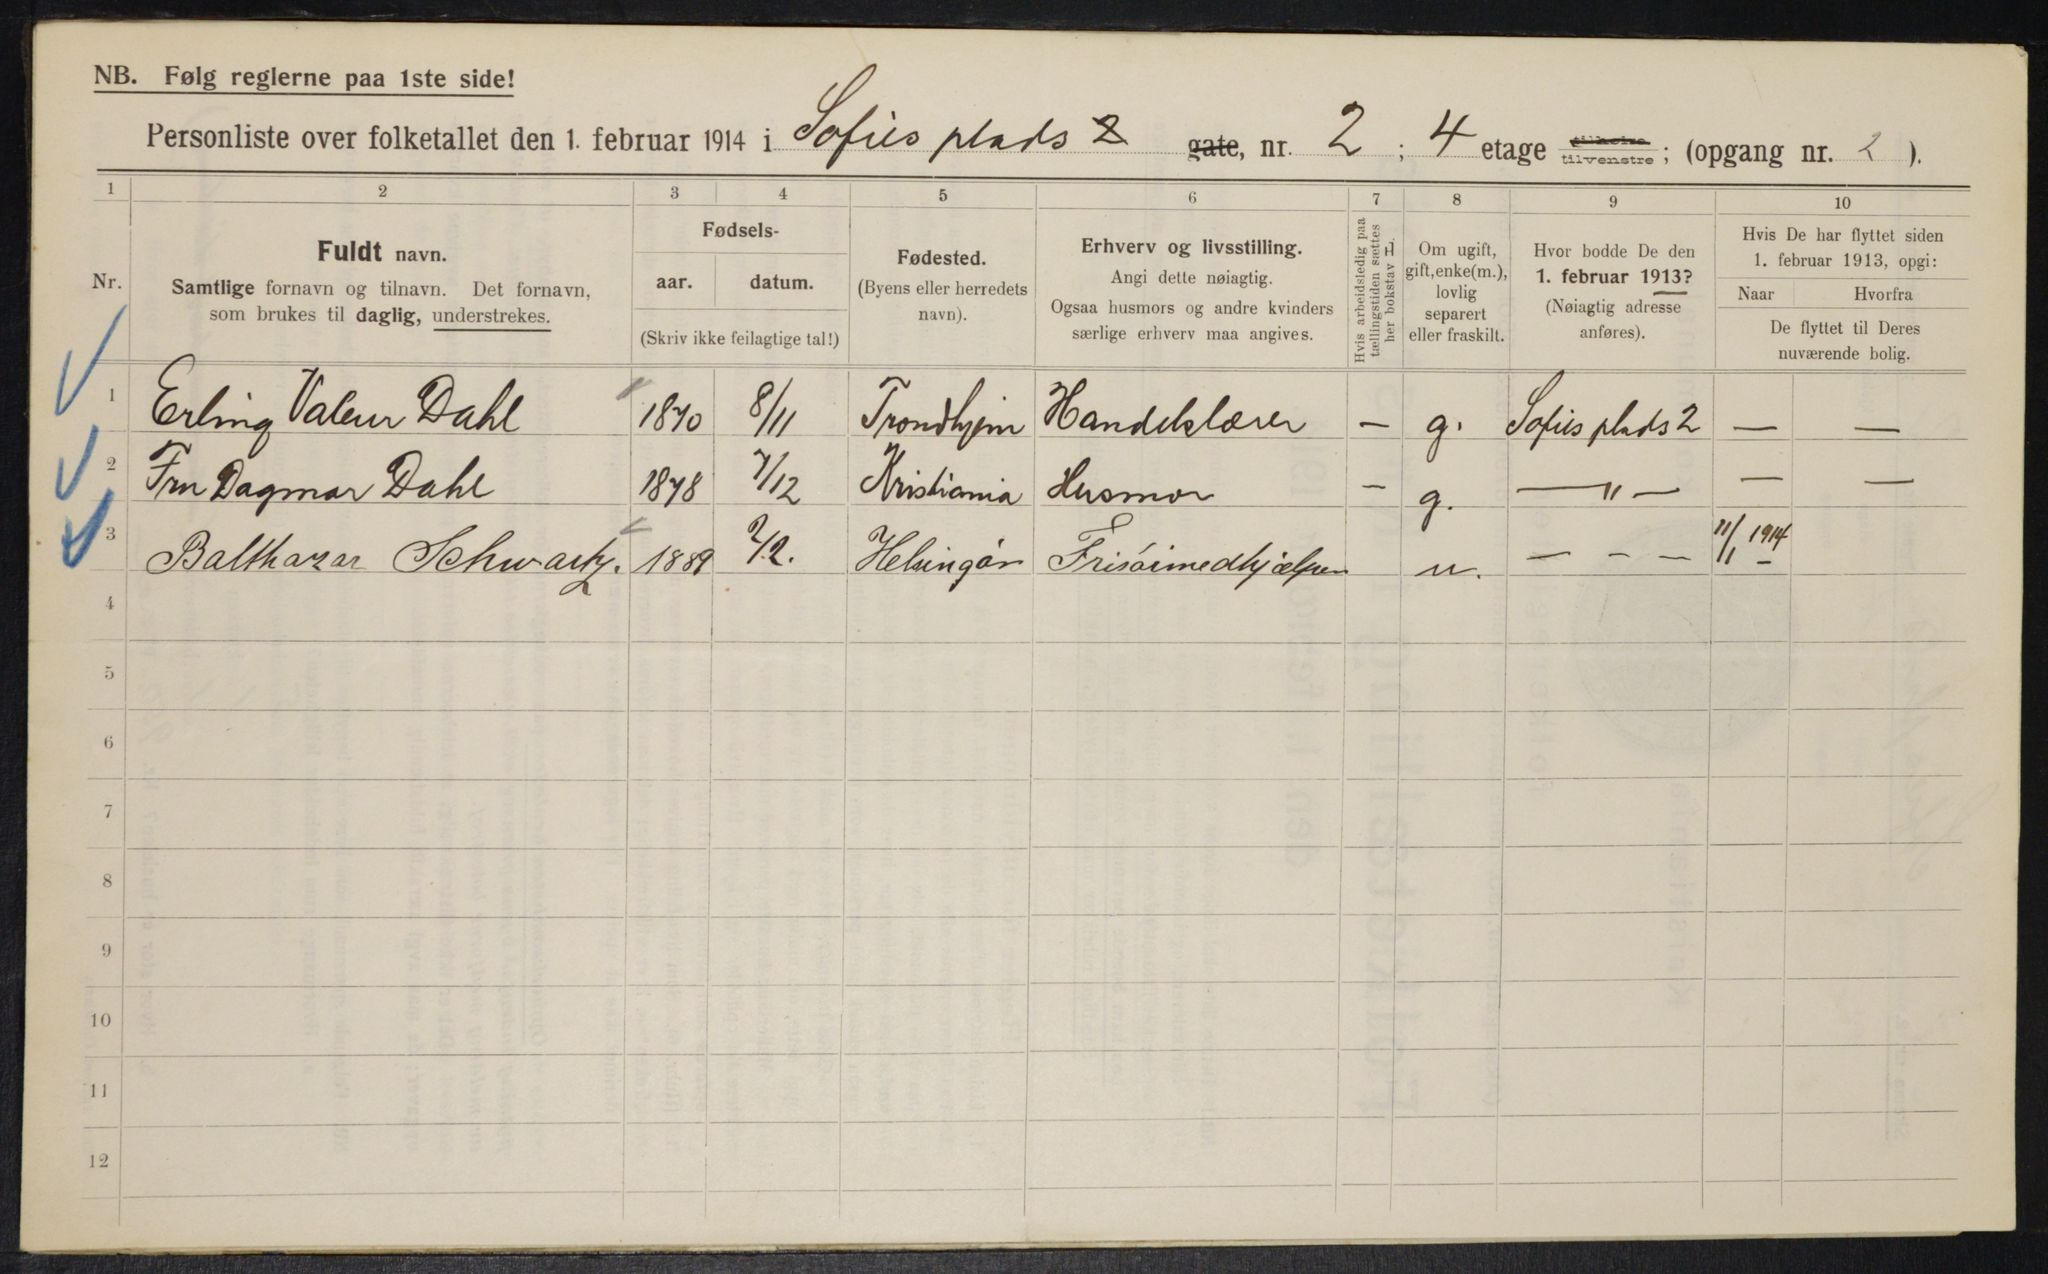 NB. Følg reglerne paa 1ste side!
Personliste over folketallet den 1. februar 1914 i Sofies plads 2 gate, nr. 2 ; 4 etage tilhøire tilvenstre ; (opgang nr. 2 ).
1 2 3 4 5 6 7 8 9 10
Nr.
Fuldt navn.
Samtlige fornavn og tilnavn. Det fornavn,
som brukes til daglig, understrekes.
Fødsels-
aar. datum.
(Skriv ikke feilagtige tal!)
Fødested.
(Byens eller herredets
navn).
Erhverv og livsstilling.
Angi dette nøiagtig.
Ogsaa husmors og andre kvinders
særlige erhverv maa angives.
Hvis arbeidsledig paa
tællingstiden sættes
her bokstav L.
Om ugift,
gift, enke(m.),
lovlig
separert
eller fraskilt.
Hvor bodde De den
1. februar 1913?
(Nøiagtig adresse
anføres).
Hvis De har flyttet siden
1. februar 1913, opgi:
Naar Hvorfra
De flyttet til Deres
nuværende bolig.
1 Erling Valeur Dahl 1870 8/11 Trondhjem Handelslærer — g. Sofies plads 2 — —
2 Fru Dagmar Dahl 1878 7/12 Kristiania Husmor — g. — " — — —
3 Balthazar Schwartz. 1889 7/2. Helsingör Frisörmedhjælper u. — — — 11/1 1914
4
5
6
7
8
9
10
11
12